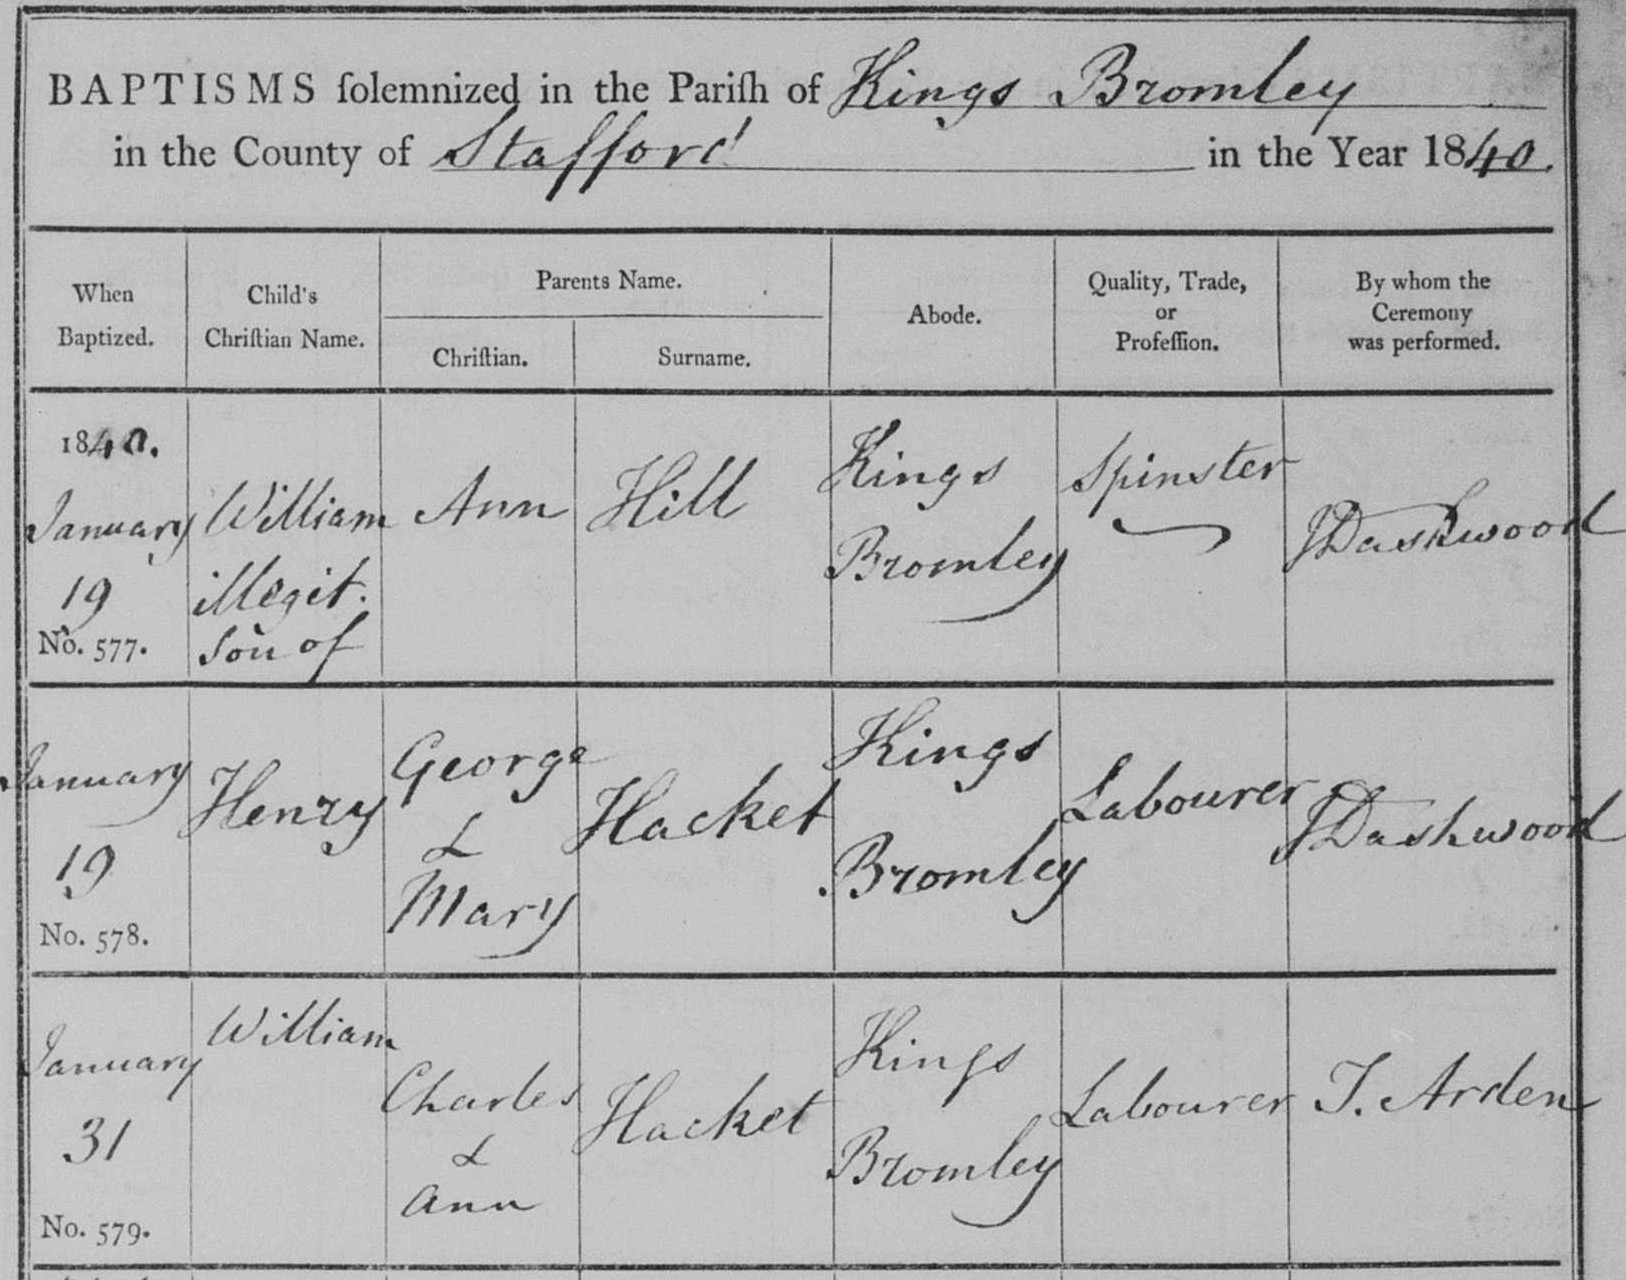 BAPTISMS ſolemnized in the Pariſh of Kings Bromley
in the County of Stafford in the Year 1840.
When
Baptized.
Child's
Chriſtian Name.
Parents Name.
Chriſtian.
Surname.
Abode.
Quality, Trade,
or
Profeſſion.
By whom the
Ceremony
was performed.
1840.
January
19
No. 577.
William
illegit.
son of
Ann
Hill
Kings
Bromley
Spinster
J Dashwood
January
19
No. 578.
Henry
George
&
Mary
Hacket
Kings
Bromley
Labourer
J Dashwood
January
31
No. 579.
William
Charles
&
Ann
Hacket
Kings
Bromley
Labourer
T. Arden